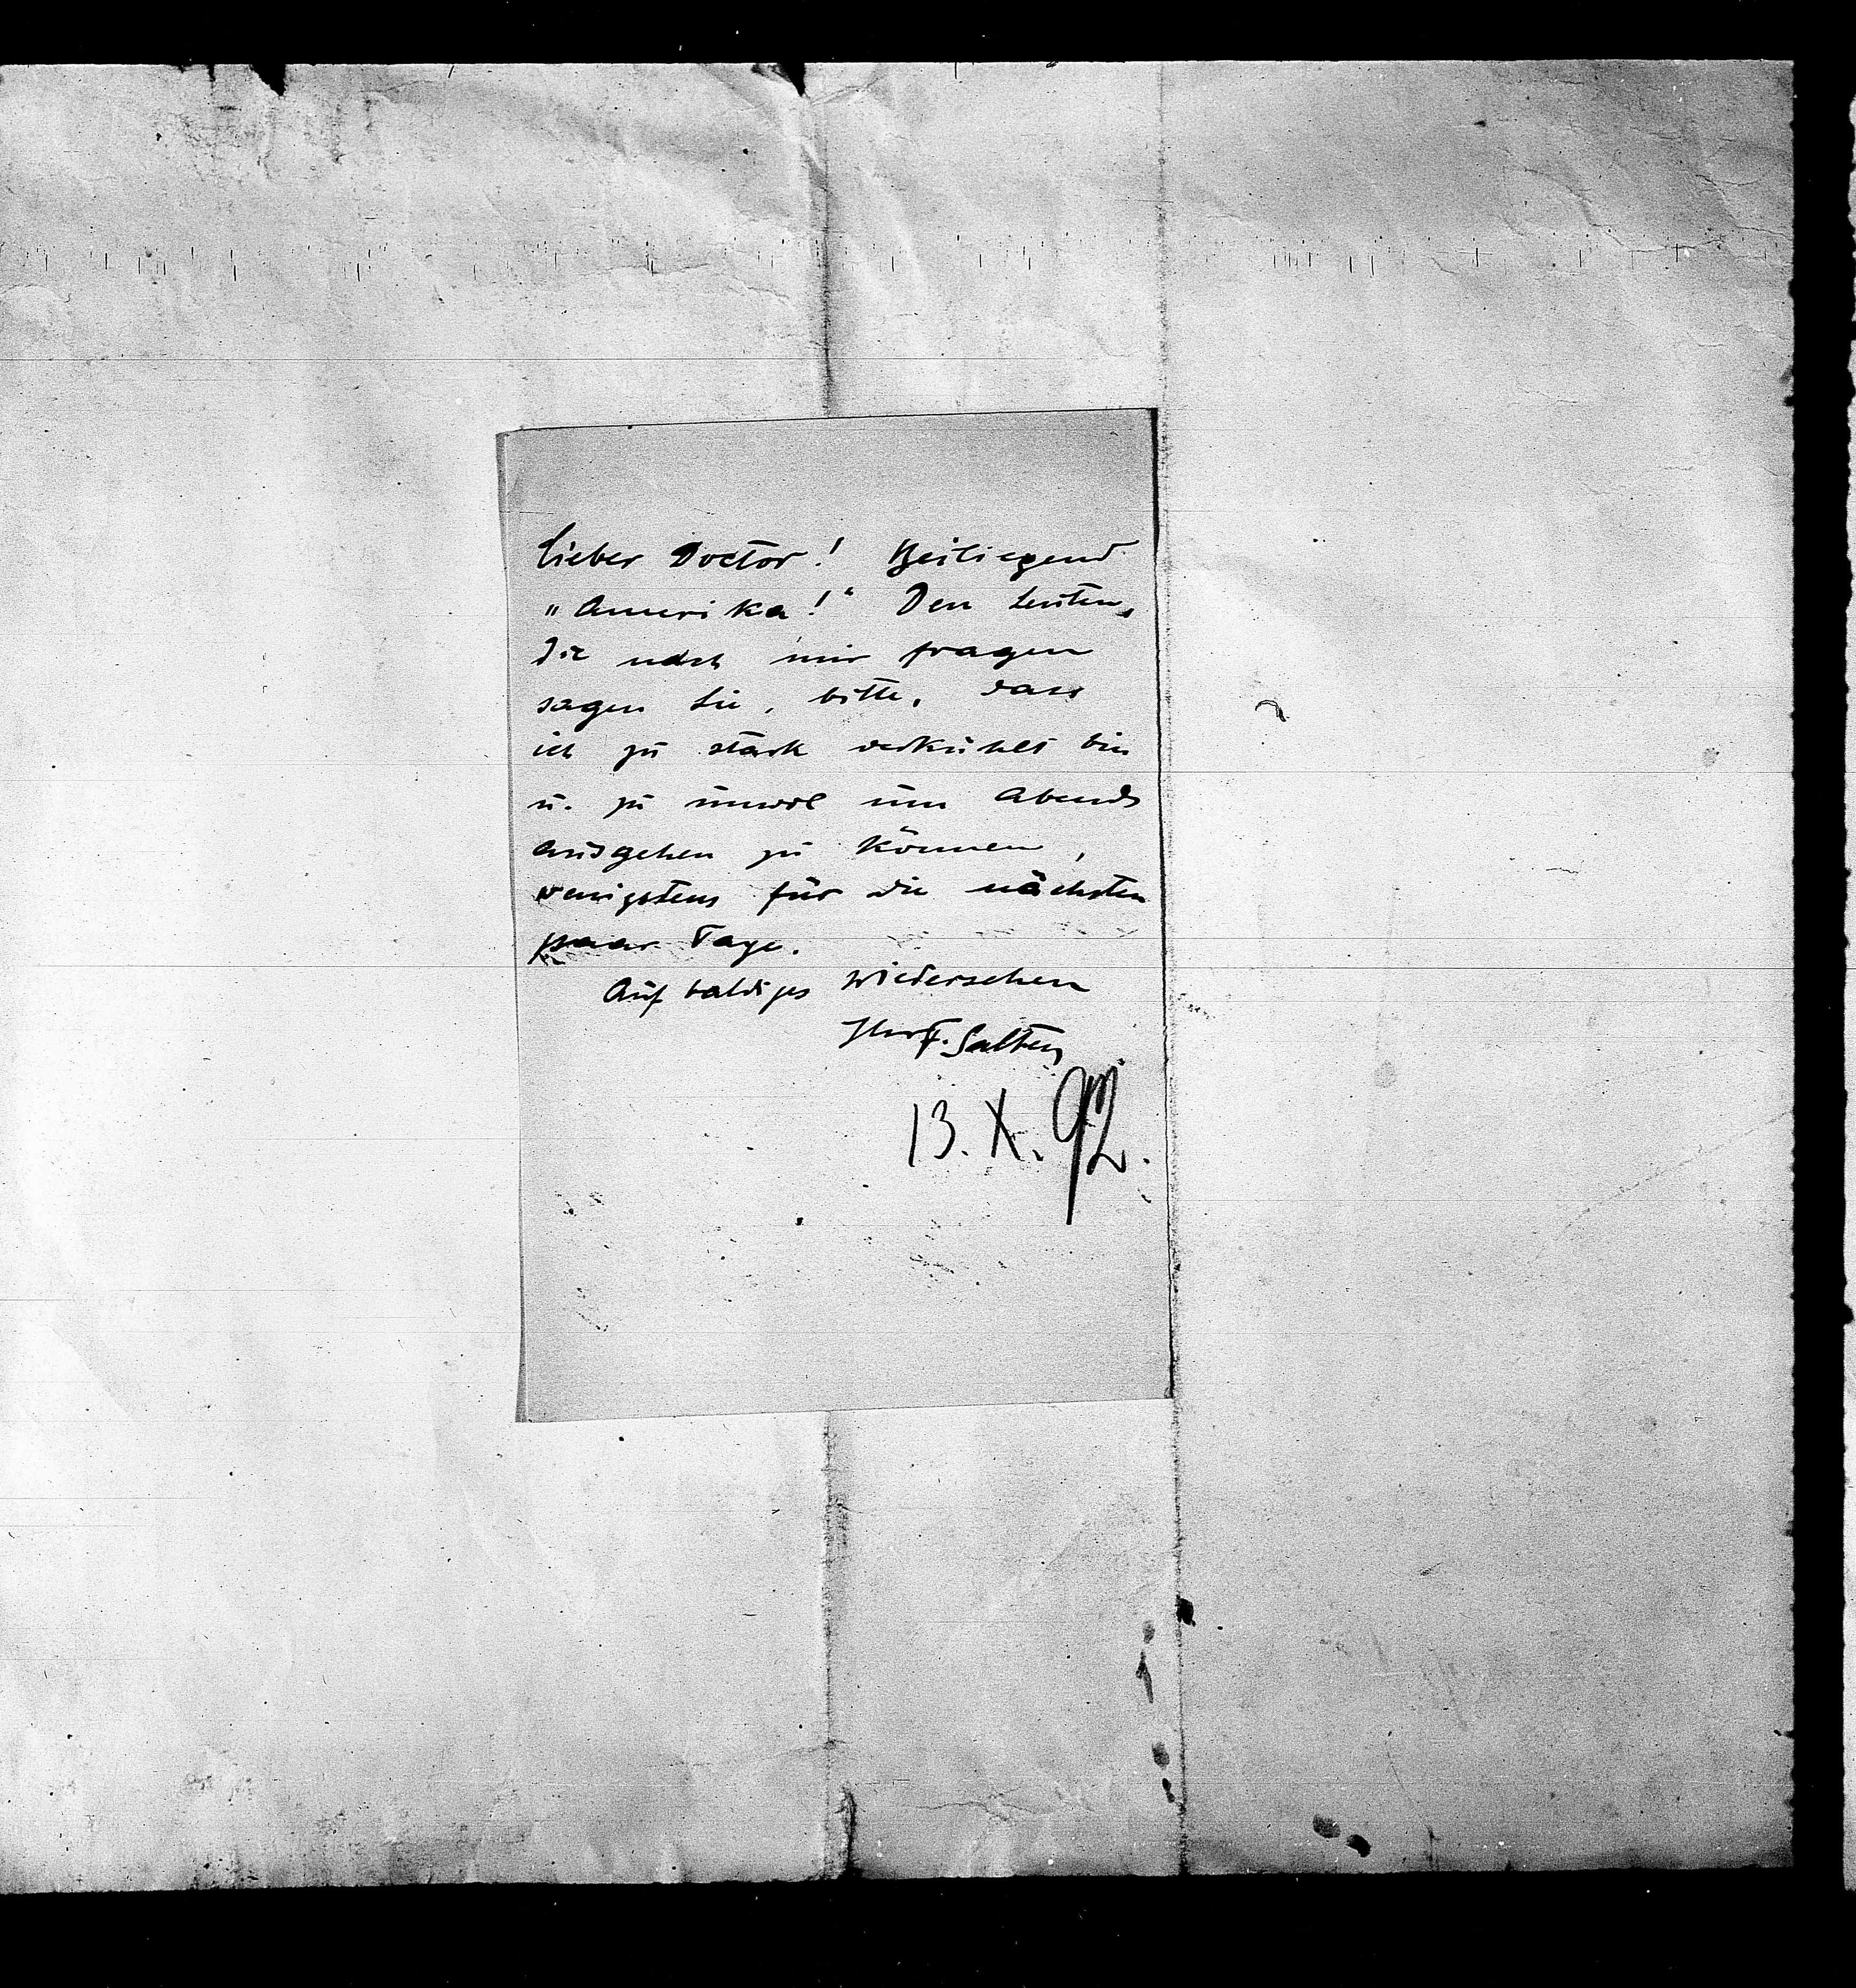 Lieber Doctor! Beiliegend
„Amerika!“ Den Leuten,
die nach mir fragen
sagen Sie, bitte, dass
ich zu stark verkühlt bin
u. zu unwol um Abends
ausgehen zu können,
wenigstens für die nächsten
paar Tage.
Auf baldiges Wiedersehen
Ihr F. Salten
13. X. 92.